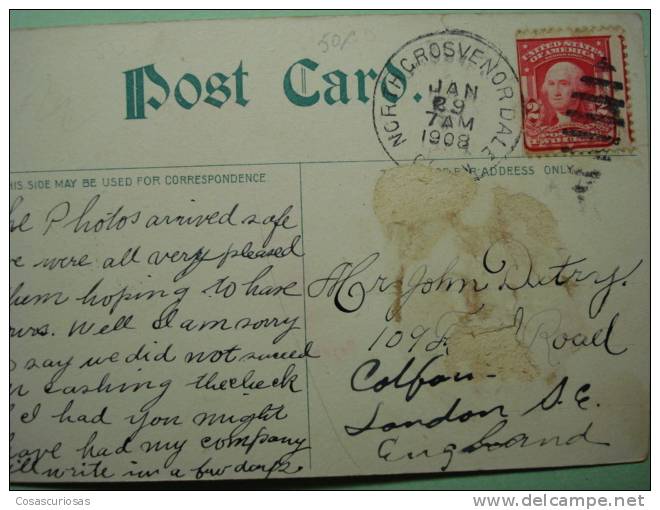 50
Post Card.
NORTH GROSVENORDALE
JAN
29
7AM
1908
UNITED STATES
OF AMERICA
2
THIS SIDE MAY BE USED FOR CORRESPONDENCE
ADDRESS ONLY
he Photos arrived safe
e were all very pleased
hem hoping to have
urs. Well I am sorry
o say we did not succeed
n cashing the check
f I had you might
have had my company
ill write in a few days
Mr John
109 Road
London S.E.
England
Cosascuriosas
www.delcampe.net